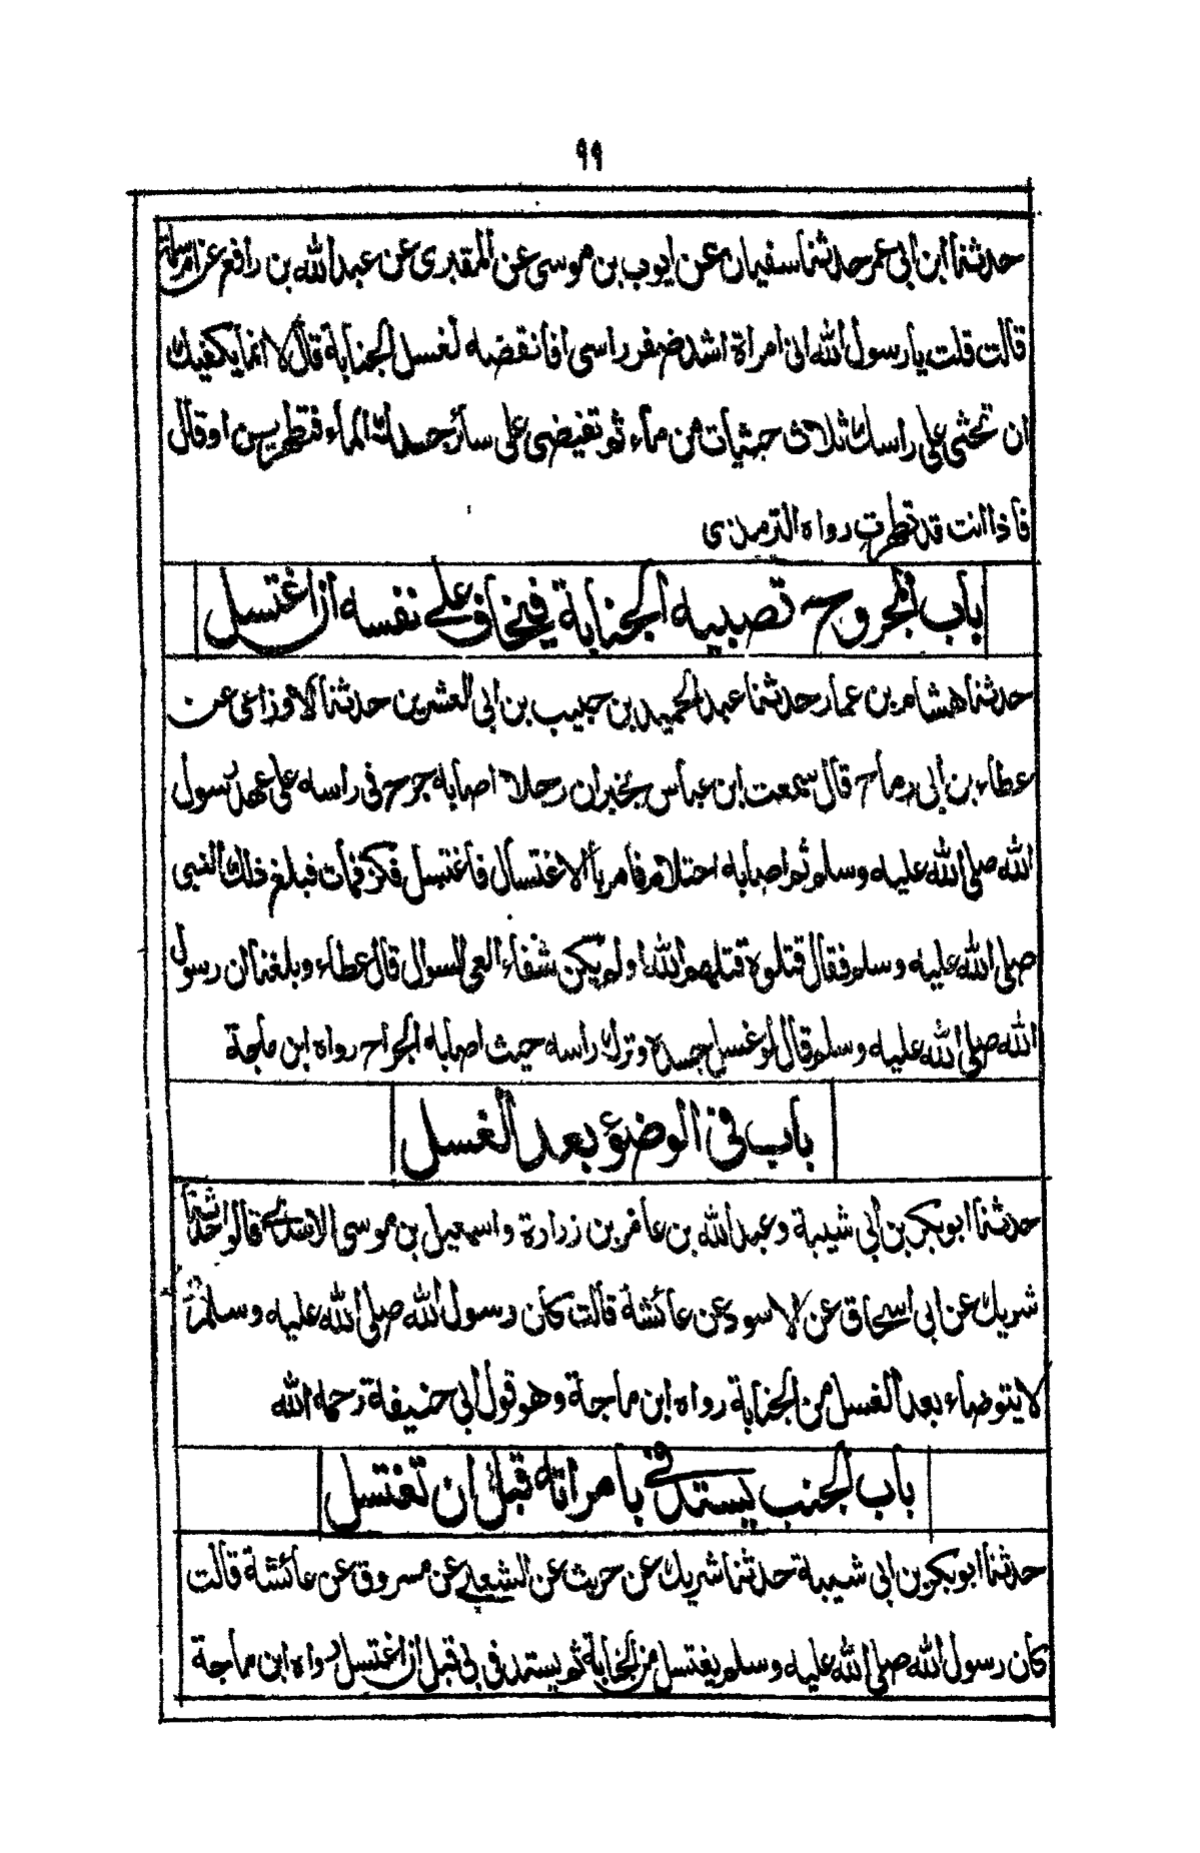 ٩٩
حدثنا ابن ابى عمر حدثنا سفيان عن ايوب بن موسى عن المقبرى عن عبد الله بن رافع عن ام سلمة
قالت قلت يا رسول الله انى امراة اشد ضفر راسى افانقضه لغسل الجنابة قال لا انما يكفيك
ان تحثى على راسك ثلاث حثيات من ماء ثم تفيضى على سائر جسدك الماء فتطهرين او قال
فاذا انت قد تطهرت رواه الترمذى
باب المجروح تصيبه الجنابة فيخاف على نفسه ان اغتسل
حدثنا هشام بن عمار حدثنا عبد الحميد بن حبيب بن ابى العشرين حدثنا الاوزاعى عن
عطاء بن ابى رباح قال سمعت ابن عباس يخبر ان رجلا اصابه جرح فى راسه على عهد رسول
الله صلى الله عليه وسلم ثم اصابه احتلام فامر بالاغتسال فاغتسل فكز فمات فبلغ ذلك النبى
صلى الله عليه وسلم فقال قتلوه قتلهم الله او لم يكن شفاء العى السوال قال عطاء وبلغنا ان رسول
الله صلى الله عليه وسلم قال لو غسل جسده وترك راسه حيث اصابه الجراح رواه ابن ماجة
باب فى الوضوء بعد الغسل
حدثنا ابو بكر بن ابى شيبة وعبد الله بن عامر بن زرارة واسمعيل بن موسى الاسدى قالوا حدثنا
شريك عن ابى اسحاق عن الاسود عن عائشة قالت كان رسول الله صلى الله عليه وسلم
لا يتوضاء بعد الغسل من الجنابة رواه ابن ماجة وهو قول ابى حنيفة رحمه الله
باب الجنب يستدفى بامراته قبل ان تغتسل
حدثنا ابو بكر بن ابى شيبة حدثنا شريك عن حريث عن الشعبى عن مسروق عن عائشة قالت
كان رسول الله صلى الله عليه وسلم يغتسل من الجنابة ثم يستدفى بى قبل ان اغتسل رواه ابن ماجة